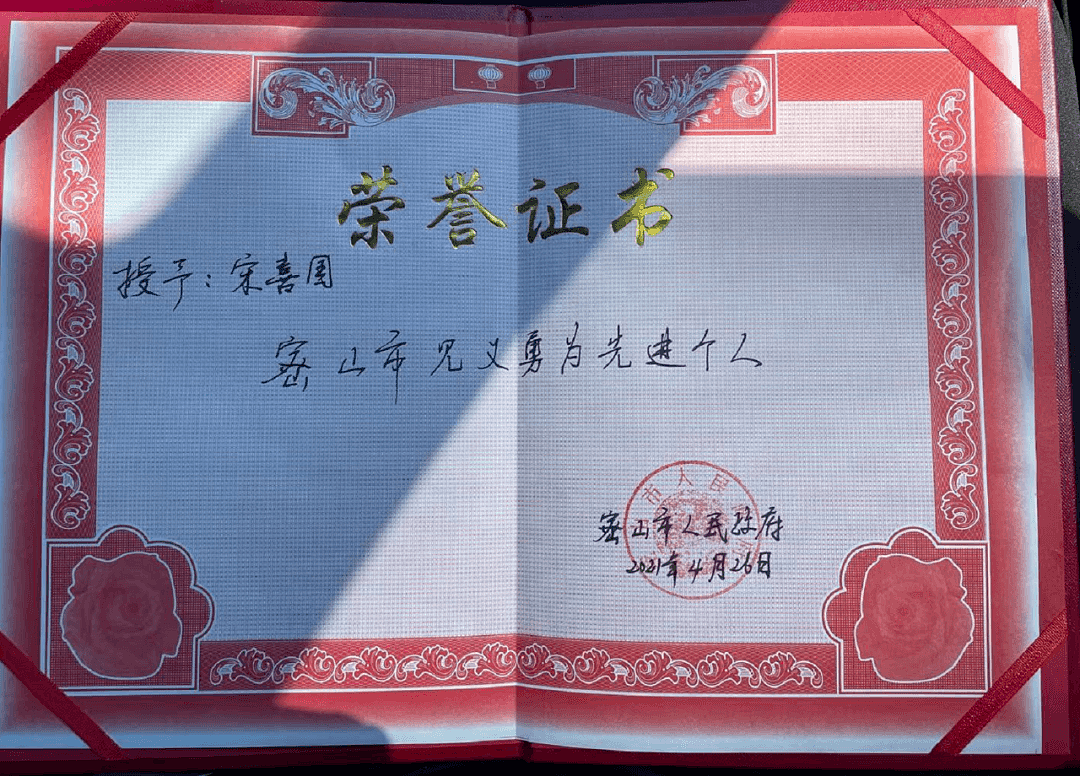 荣誉证书
授予：宋喜国
密山市见义勇为先进个人
市人民
密山市人民政府
2021年4月26日